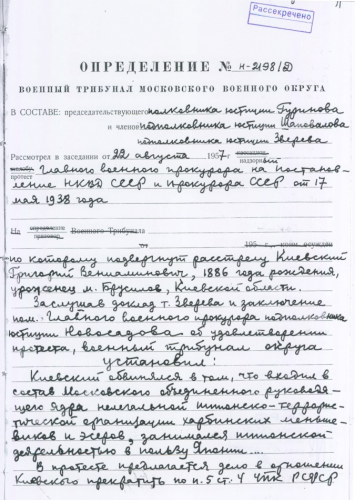 Рассекречено
ОПРЕДЕЛЕНИЕ № н-2198/
ВОЕННЫЙ ТРИБУНАЛ МОСКОВСКОГО ВОЕННОГО ОКРУГА
В СОСТАВЕ: председательствующего полковника юстиции Гуринова
и членов подполковника юстиции Шаповалова
подполковника юстиции Зверева
Рассмотрел в заседании от 22 августа 1957 г.
протест Главного военного прокурора на постанов-
ление НКВД СССР и Прокурора СССР от 17
мая 1938 года
На Военного Трибунала
195 г., коим осужден
по которому подвергнут расстрелу Киевский
Григорий Вениаминович, 1886 года рождения,
уроженец м. Брусилов, Киевской области.
Заслушав доклад т. Зверева и заключение
пом. Главного военного прокурора подполковника
юстиции Новосадова об удовлетворении
протеста, военный трибунал округа
установил:
Киевский обвинялся в том, что входил в
состав Московского объединенного руководя-
щего ядра нелегальной шпионско-террорис-
тической организации харбинских меньше-
виков и эсеров, занимался шпионской
деятельностью в пользу Японии....
В протесте предлагается дело в отношении
Киевского прекратить по п. 5 ст. 4 УПК РСФСР